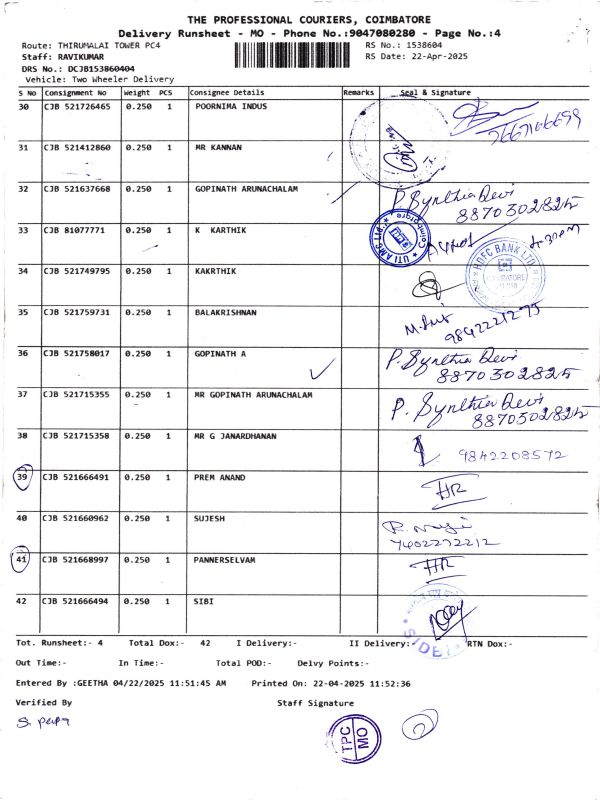 THE PROFESSIONAL COURIERS, COIMBATORE
Delivery Runsheet - MO - Phone No.:9047080280 - Page No.:4
Route: THIRUMALAI TOWER PC4 RS No.: 1538604
Staff: RAVIKUMAR RS Date: 22-Apr-2025
DRS No.: DCJB153860404
Vehicle: Two Wheeler Delivery
S No Consignment No Weight PCS Consignee Details Remarks Seal & Signature
30 CJB 521726465 0.250 1 POORNIMA INDUS
31 CJB 521412860 0.250 1 MR KANNAN
32 CJB 521637668 0.250 1 GOPINATH ARUNACHALAM P. Synthia Devi
8870302825
33 CJB 81077771 0.250 1 K KARTHIK UTI AMC PVT Coimbatore
34 CJB 521749795 0.250 1 KAKRTHIK HDFC BANK LTD
35 CJB 521759731 0.250 1 BALAKRISHNAN
9842221275
36 CJB 521758017 0.250 1 GOPINATH A P. Synthia Devi
8870302825
37 CJB 521715355 0.250 1 MR GOPINATH ARUNACHALAM P. Synthia Devi
8870302825
38 CJB 521715358 0.250 1 MR G JANARDHANAN 9842208572
39 CJB 521666491 0.250 1 PREM ANAND HR
40 CJB 521660962 0.250 1 SUJESH
7402272212
41 CJB 521668997 0.250 1 PANNERSELVAM HR
42 CJB 521666494 0.250 1 SIBI
Tot. Runsheet:- 4 Total Dox:- 42 I Delivery:- II Delivery:- RTN Dox:-
Out Time:- In Time:- Total POD:- Delvy Points:-
Entered By :GEETHA 04/22/2025 11:51:45 AM Printed On: 22-04-2025 11:52:36
Verified By Staff Signature
TPC
MO